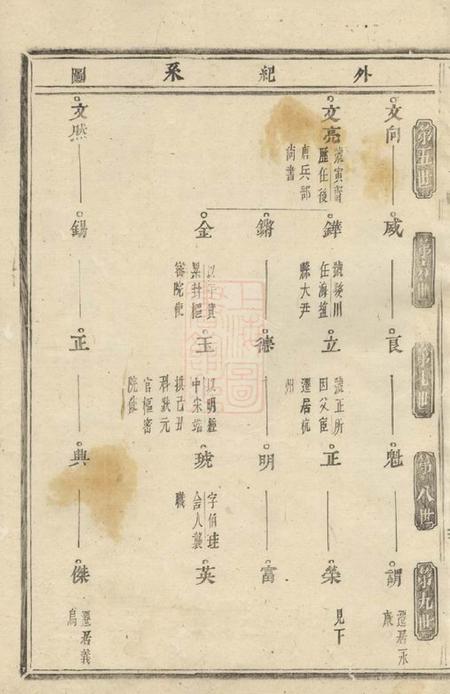 外紀系圖
第五世
第六世
第七世
第八世
第九世
文向
威
良
魁
謂
遷居永
康
文亮
歷任後
唐兵部
尚書
鏵
號
川
任
縣大尹
立
號正所
因父宦
遷居杭
州
正
榮
見下
鏘
德
明
富
金
以
貴
累封樞
密院使
玉
以明經
中宋端
拱己丑
科狀元
官樞密
院使
琥
字伯珪
舍人襲
職
英
文熙
錫
正
典
傑
遷居義
烏
上海圖